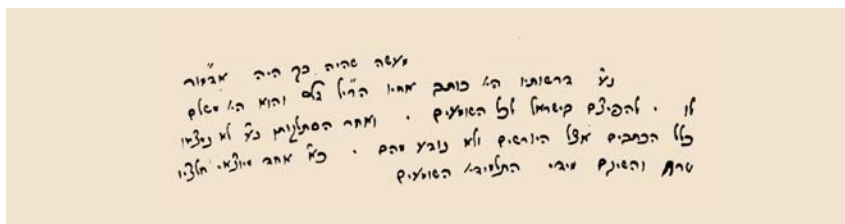 מעשה שהיה כך היה אאמו"ר
נ"ע ברשותו הי' כותב מאחיו הרי"ל ג"כ והוא הי' משלם
לו . להפיצם בישראל לכל השומעים . ואחר הסתלקותו נ"ע לא נמצאו
כלל הכתבים אצל היורשים ולא נודע מהם . כ"א אחד מיוצאי חלציו
טרח והשיגם מידי התלמידי' השומעים